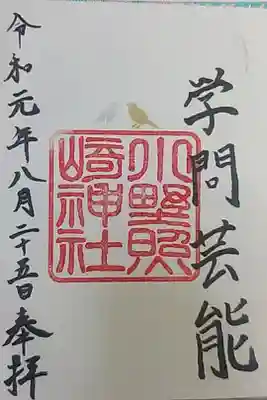 学問芸能
小野照
崎神社
令和元年八月二十五日奉拝